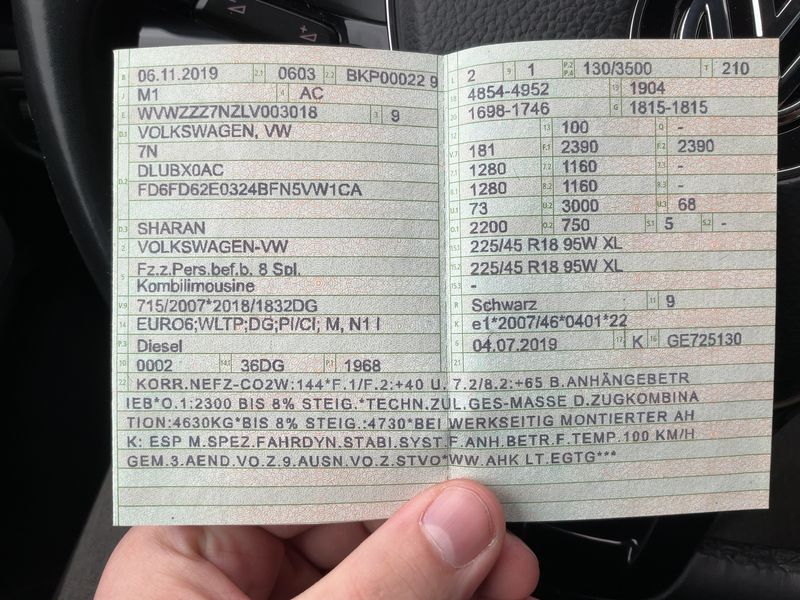 B 06.11.2019 2.1 0603 2.2 BKP00022 9
J M1 4 AC
E WVWZZZ7NZLV003018 3 9
D.1 VOLKSWAGEN, VW
7N
D.2 DLUBX0AC
FD6FD62E0324BFN5VW1CA
D.3 SHARAN
2 VOLKSWAGEN-VW
5 Fz.z.Pers.bef.b. 8 Spl.
Kombilimousine
V.9 715/2007*2018/1832DG
14 EURO6;WLTP;DG;PI/CI; M, N1 I
P.3 Diesel
10 0002 14.1 36DG P.1 1968
L 2 9 1 P.2 P.4 130/3500 T 210
18 4854-4952 19 1904
20 1698-1746 G 1815-1815
12 13 100 Q -
V.7 181 F.1 2390 F.2 2390
7.1 1280 7.2 1160 7.3 -
8.1 1280 8.2 1160 8.3 -
U.1 73 U.2 3000 U.3 68
O.1 2200 O.2 750 S.1 5 S.2 -
15.1 225/45 R18 95W XL
15.2 225/45 R18 95W XL
15.3 -
R Schwarz 11 9
K e1*2007/46*0401*22
6 04.07.2019 17 K 16 GE725130
21
22 KORR.NEFZ-CO2W:144*F.1/F.2:+40 U. 7.2/8.2:+65 B.ANHÄNGEBETR
IEB*O.1:2300 BIS 8% STEIG.*TECHN.ZUL.GES-MASSE D.ZUGKOMBINA
TION:4630KG*BIS 8% STEIG.:4730*BEI WERKSEITIG MONTIERTER AH
K: ESP M.SPEZ.FAHRDYN.STABI.SYST.F.ANH.BETR.F.TEMP.100 KM/H
GEM.3.AEND.VO.Z.9.AUSN.VO.Z.STVO*WW.AHK LT.EGTG***